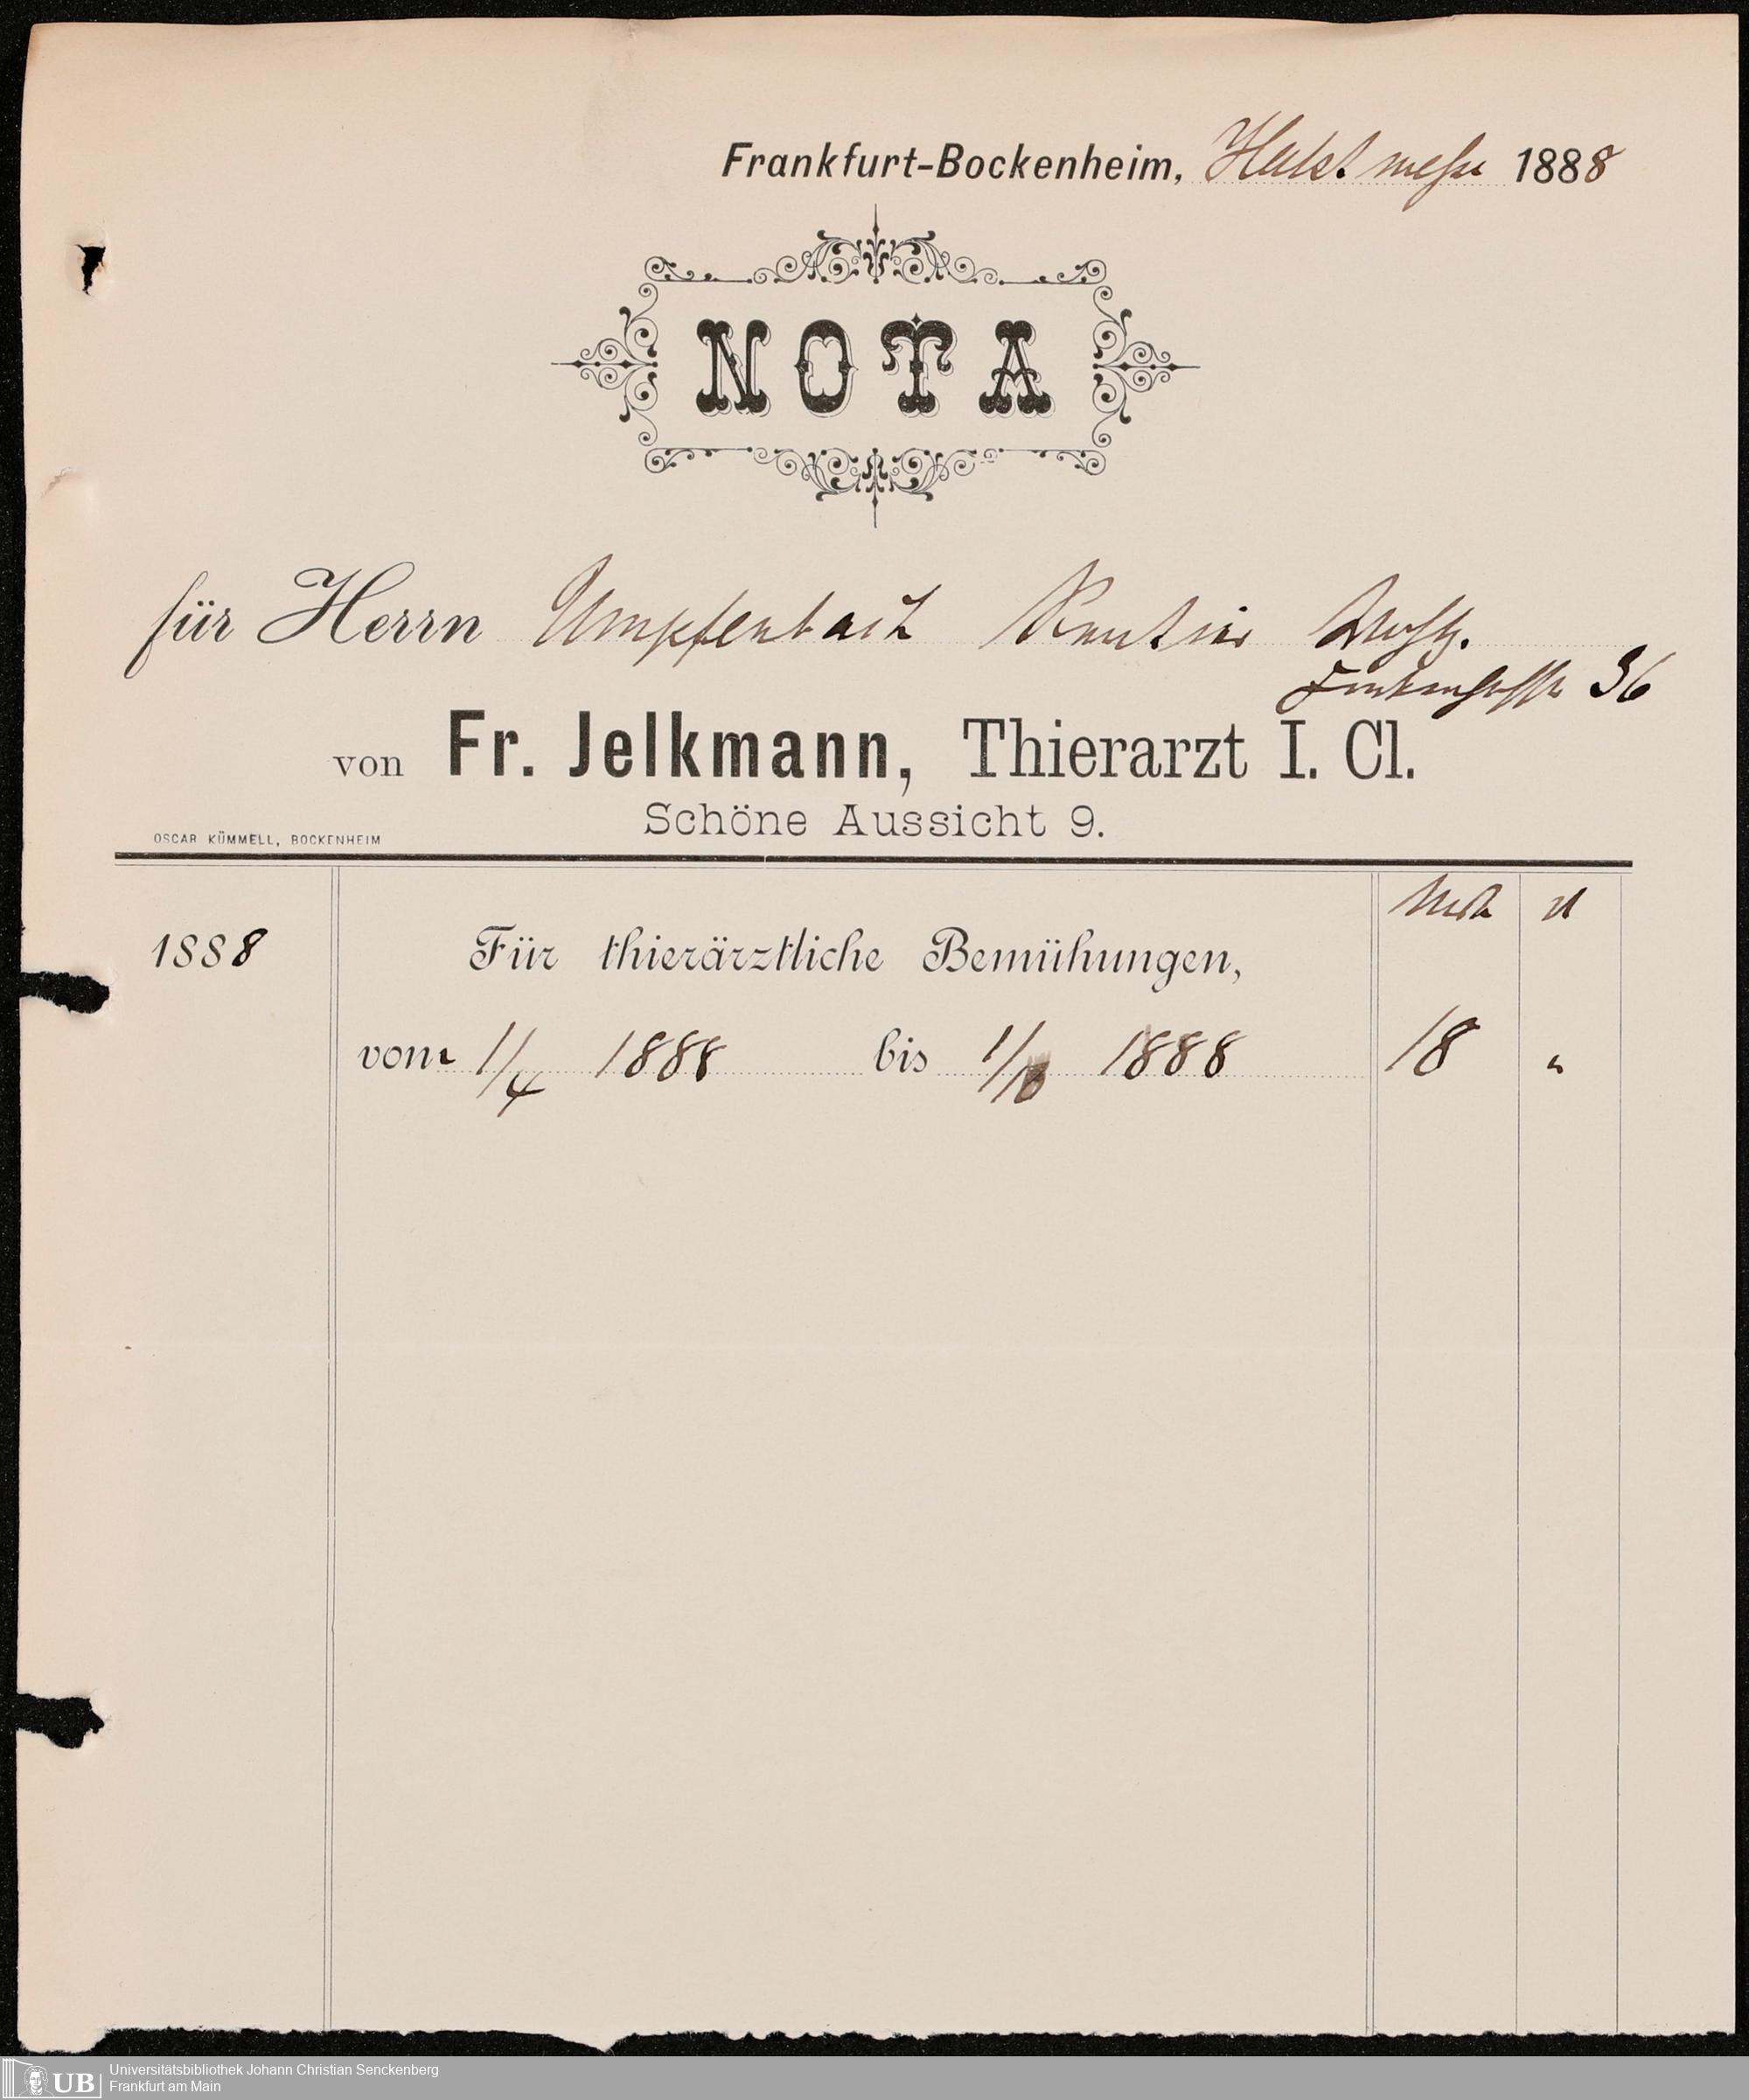 Frankfurt-Bockenheim, Herbstmesse 1888
NOTA
für Herrn Umpfenbach Rentier
36
von Fr. Jelkmann, Thierarzt I. Cl.
Schöne Aussicht 9.
OSCAR KÜMMELL, BOCKENHEIM
Mrk
1888 Für thierärztliche Bemühungen,
vom 1/4 1888 bis 1888 18 "
UB Universitätsbibliothek Johann Christian Senckenberg
Frankfurt am Main